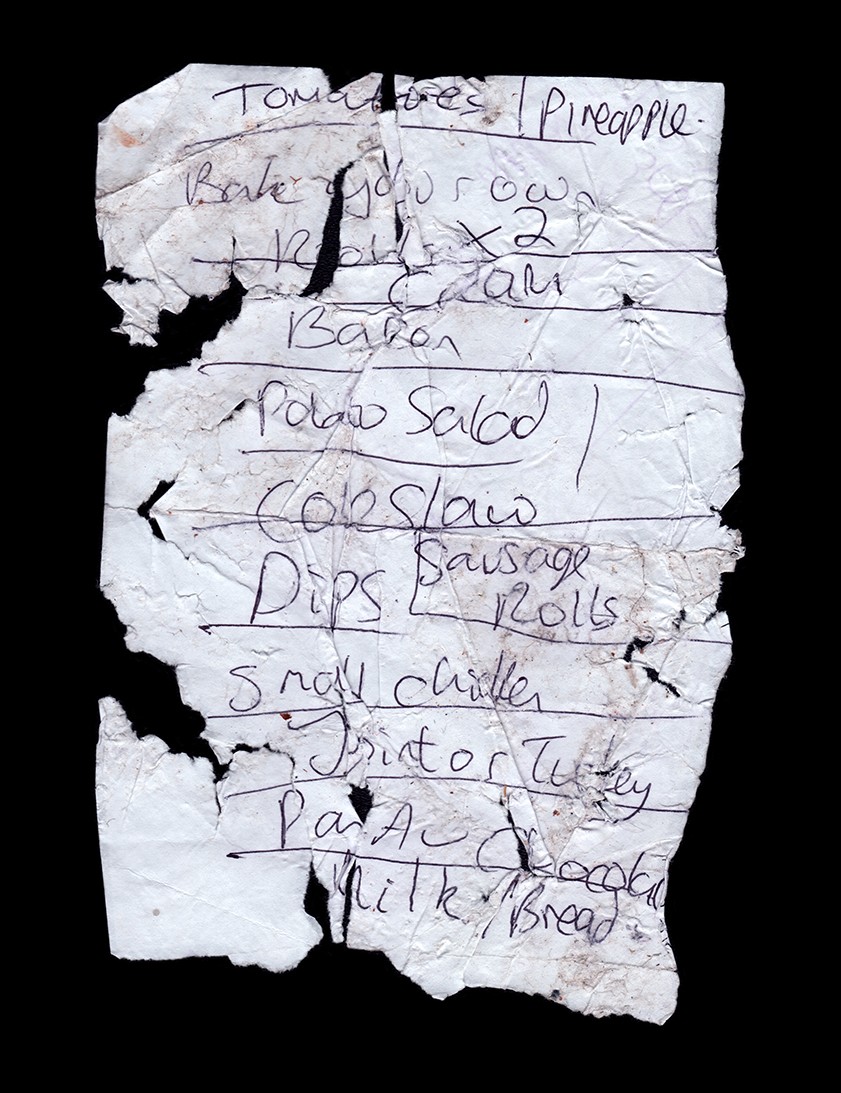 Tomatoes | Pineapple.
Bake your own
Rolls x2
Cream
Bacon
Potato Salad
Coleslaw
Dips Sausage
Rolls
Small chicken
Joint or Turkey
Pan Au Chocolat
Milk / Bread.